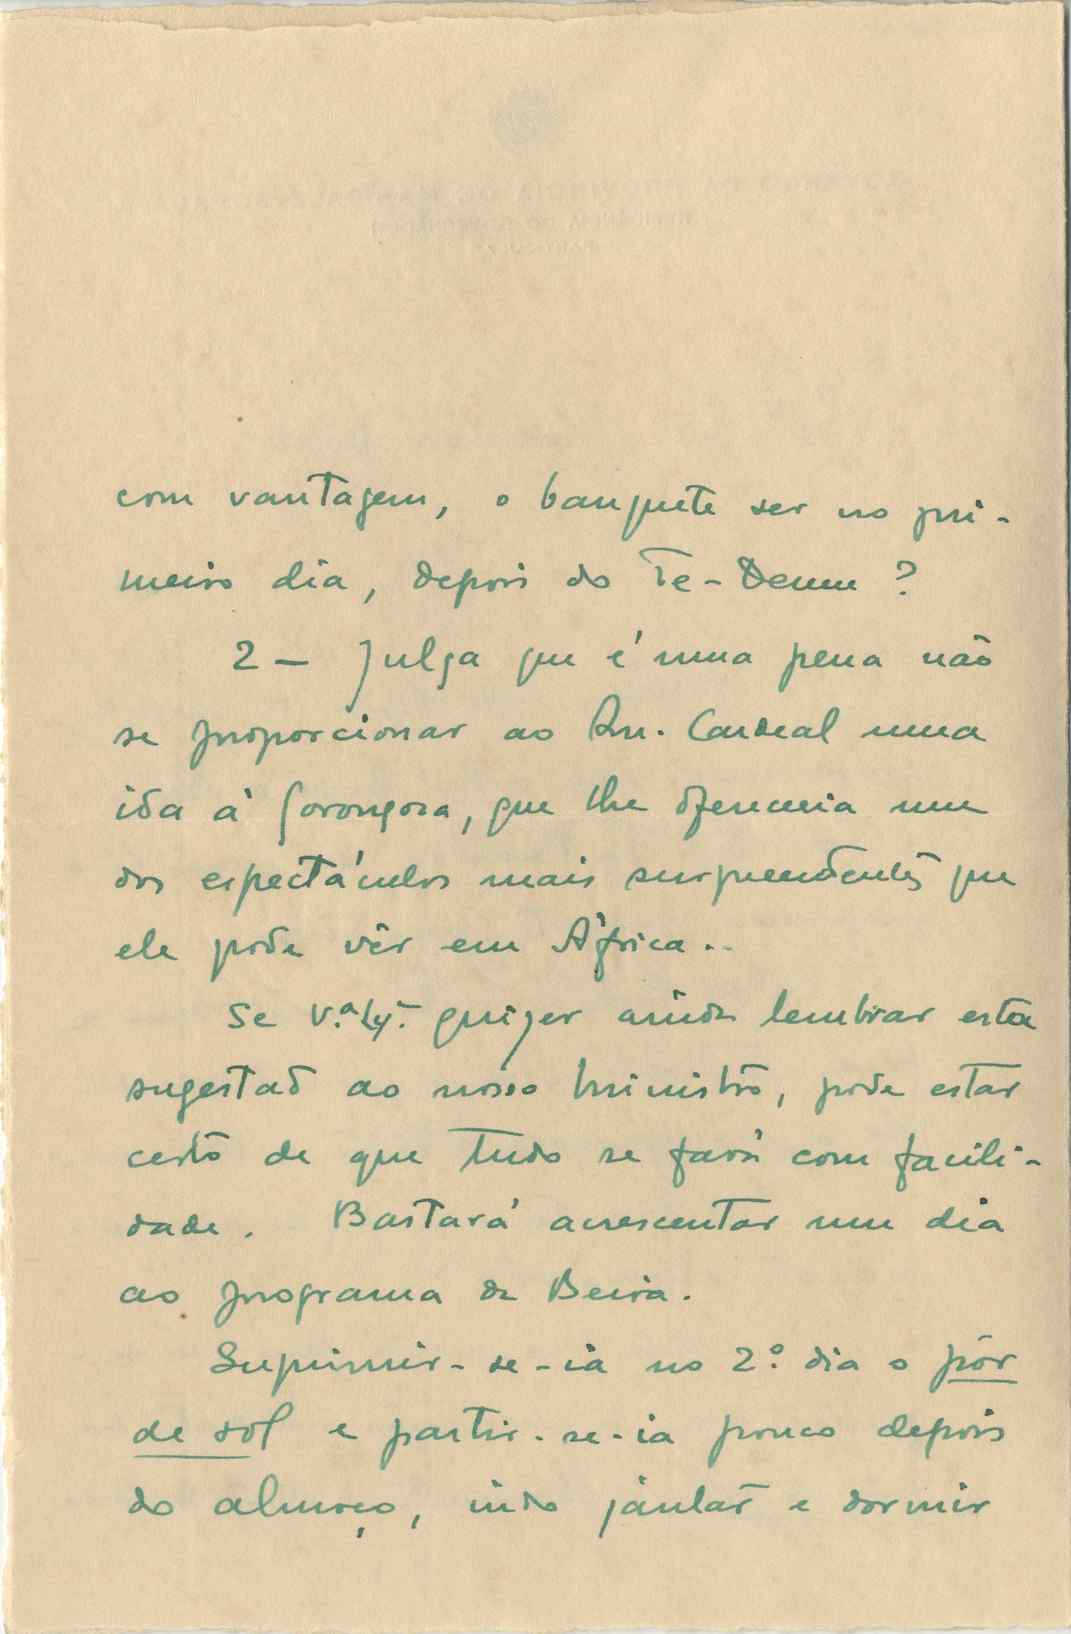 com vantagem, o banquete ser no pri-
meiro dia, depois do Te-Deum?
2 — Julga que é uma pena não
se proporcionar ao Sr. Cardeal uma
ida à Gorongosa, que lhe ofereceria um
dos espectáculos mais surpreendentes que
ele pode vêr em África..
Se V.ª Ex.ª quizer ainda lembrar esta
sugestão ao nosso Ministro, pode estar
certo de que tudo se fará com facili-
dade. Bastará acrescentar um dia
ao programa da Beira.
Suprimir-se-ia no 2.º dia o pôr
de sol e partir-se-ia pouco depois
do almoço, indo jantar e dormir